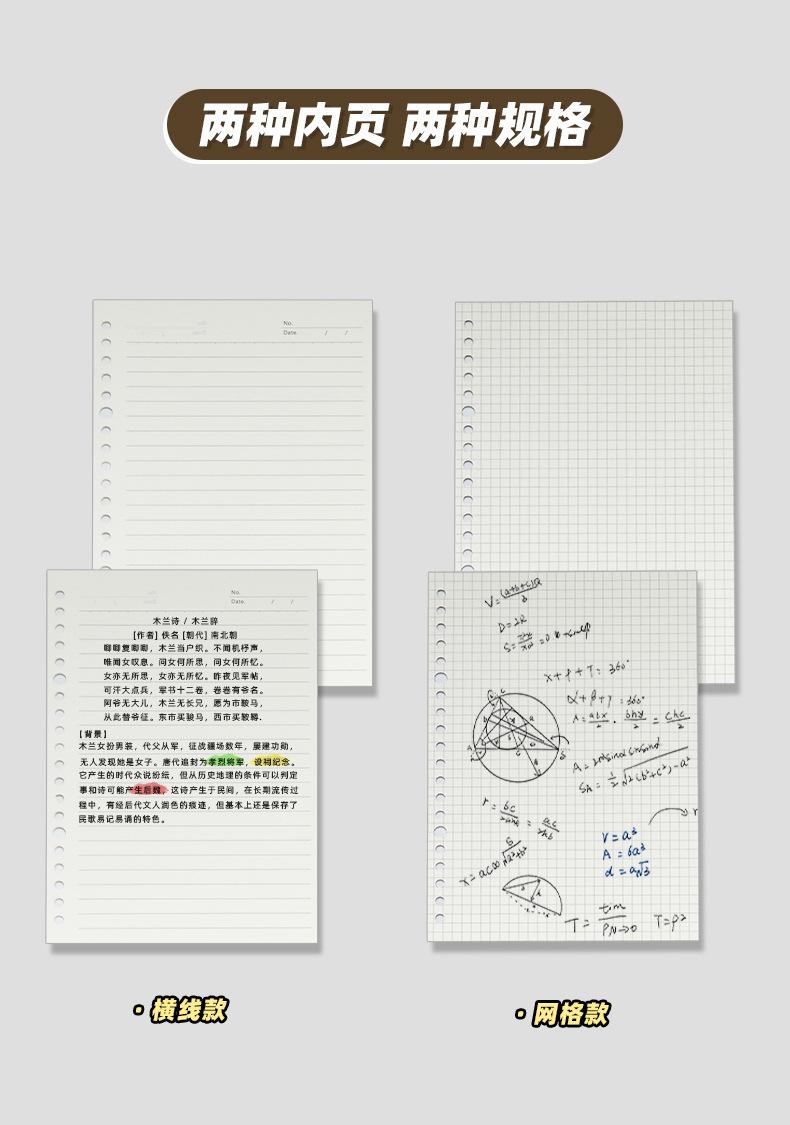 两种内页 两种规格
No.
Date. / /
No.
Date. / /
木兰诗 / 木兰辞
[作者] 佚名 [朝代] 南北朝
唧唧复唧唧，木兰当户织。不闻机杼声，
唯闻女叹息。问女何所思，问女何所忆。
女亦无所思，女亦无所忆。昨夜见军帖，
可汗大点兵，军书十二卷，卷卷有爷名。
阿爷无大儿，木兰无长兄，愿为市鞍马，
从此替爷征。东市买骏马，西市买鞍鞯.
【背景】
木兰女扮男装，代父从军，征战疆场数年，屡建功勋，
无人发现她是女子。唐代追封为孝烈将军，设祠纪念。
它产生的时代众说纷纭，但从历史地理的条件可以判定
事和诗可能产生后魏，这诗产生于民间，在长期流传过
程中，有经后代文人润色的痕迹，但基本上还是保存了
民歌易记易诵的特色。
D=2R
α+β+γ=360°
V=a³
A=6a³
d=a√3
T=P²
· 横线款
· 网格款